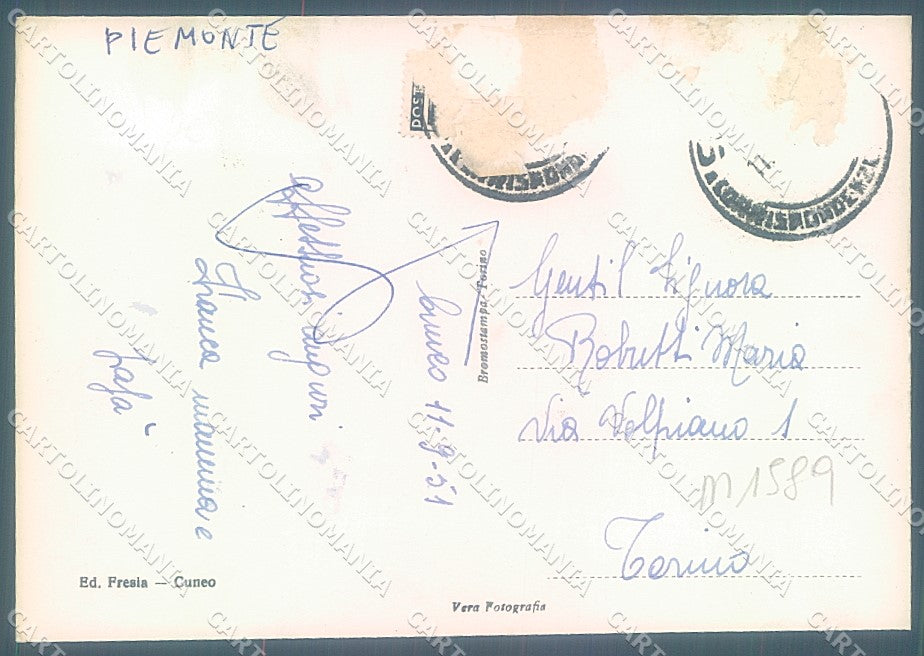 PIEMONTE
POSTE
Affettuosi auguri
Franca mamma e
papà
Cuneo 11-9-51
Bromostampa, Torino
Gentil Signora
Robutti Maria
Via Volpiano 1
Torino
m1589
Ed. Fresia — Cuneo
Vera Fotografia
CARTOLINOMANIA